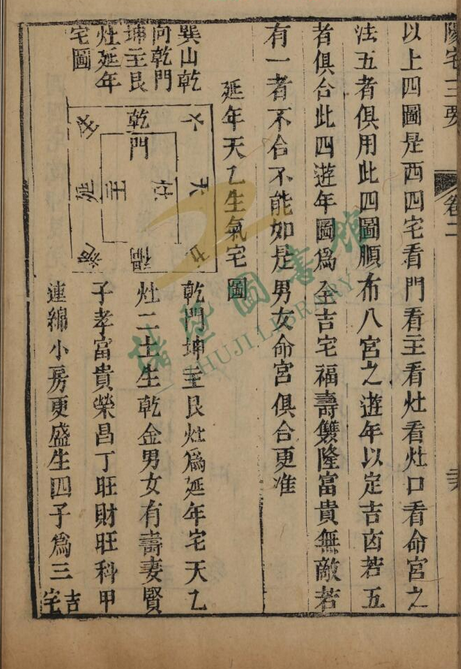 陽宅三要
卷二
以上四圖是西四宅看門看主看灶看灶口看命宮之
法五者俱用此四圖順布八宮之遊年以定吉凶若五
者俱合此四遊年圖爲全吉宅福壽雙隆富貴無敵若
有一者不合不能如是男女命宮俱合更准
延年天乙生氣宅圖
巽山乾
向乾門
坤主艮
灶延年
宅圖
乾門
主
灶
天
延
乾門坤主艮灶爲延年宅天乙
灶二土生乾金男女有壽妻賢
子孝富貴榮昌丁旺財旺科甲
連綿小房更盛生四子爲三吉
宅
諸暨圖書館
ZHUJI LIBRARY